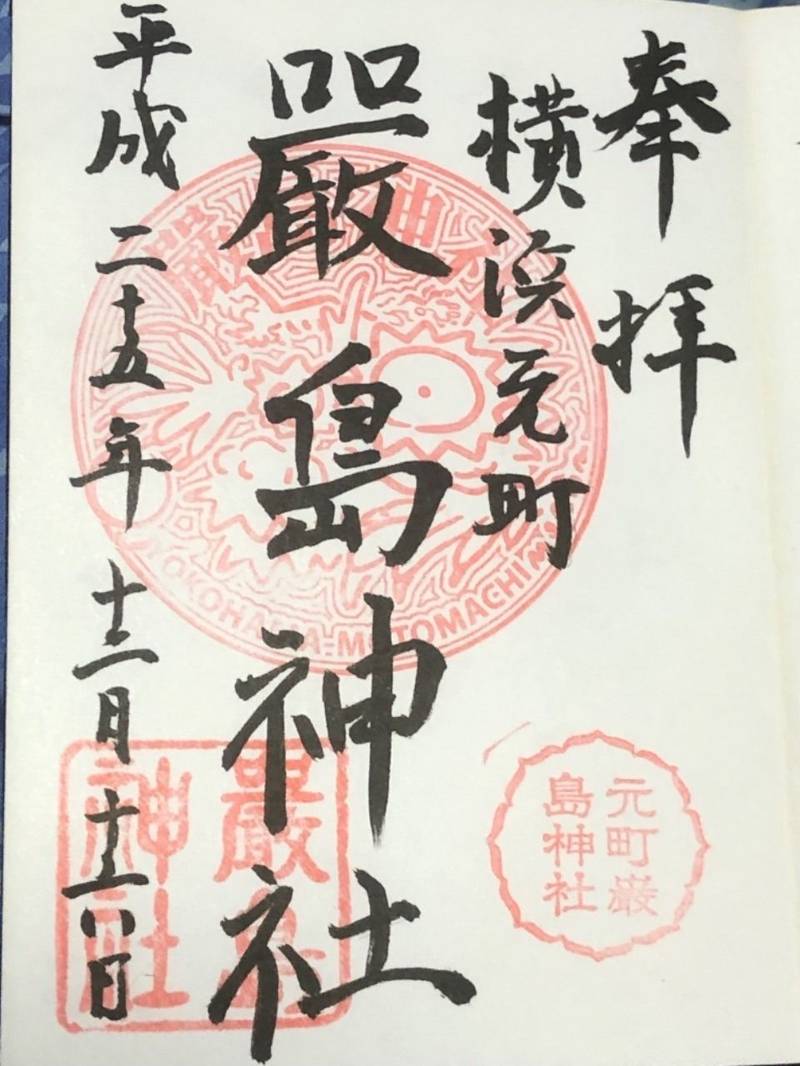 奉拝
横浜元町
嚴島神社
平成二十五年十二月十六日
嚴島神社
YOKOHAMA-MOTOMACHI
元町巌
島神社
嚴島
神社